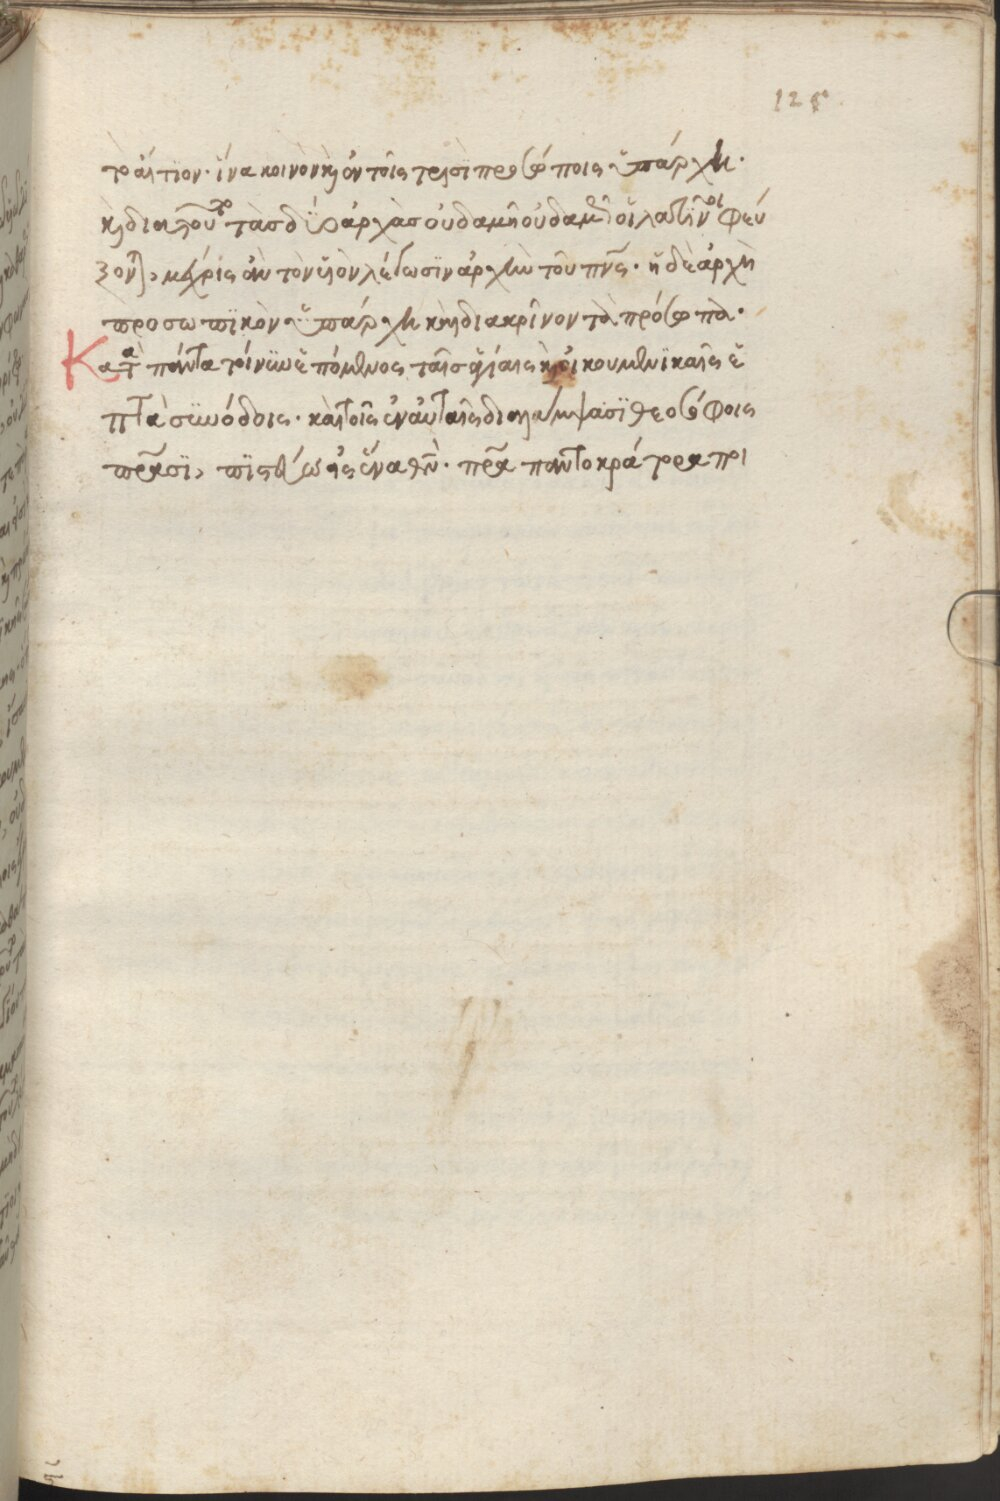 125
τὸ αἴτιον· ἵνα κοινὸν καὶ ἐν τοῖς τρισὶ προσώποις ὑπάρχη·
καὶ διὰ τοῦτο τὰς δύο ἀρχὰς οὐδαμῆ οὐδαμῶς οἱ λατῖνοι φεύ
ζονται, μέχρις ἂν τὸν υἱὸν λέγωσιν ἀρχὴν τοῦ πνς· ἡ δὲ ἀρχὴ
προσωπικὸν ὑπάρχη καὶ διακρῖνον τὰ πρόσωπα·
Κατὰ πάντα τοίνυν ἑπόμενος ταῖς ἁγίαις καὶ οἰκουμενικαῖς ἑ
πτὰ συνόδοις· καὶ τοῖς ἐν αὐταῖς διαλάμψασι θεοσόφοις
πρᾶσι, πιστεύω εἰς ἕνα θν· πρα παντοκράτορα ποι